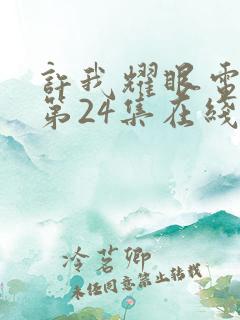 許我耀眼電
第24集在綫
冷茗卿
未经同意禁止转载